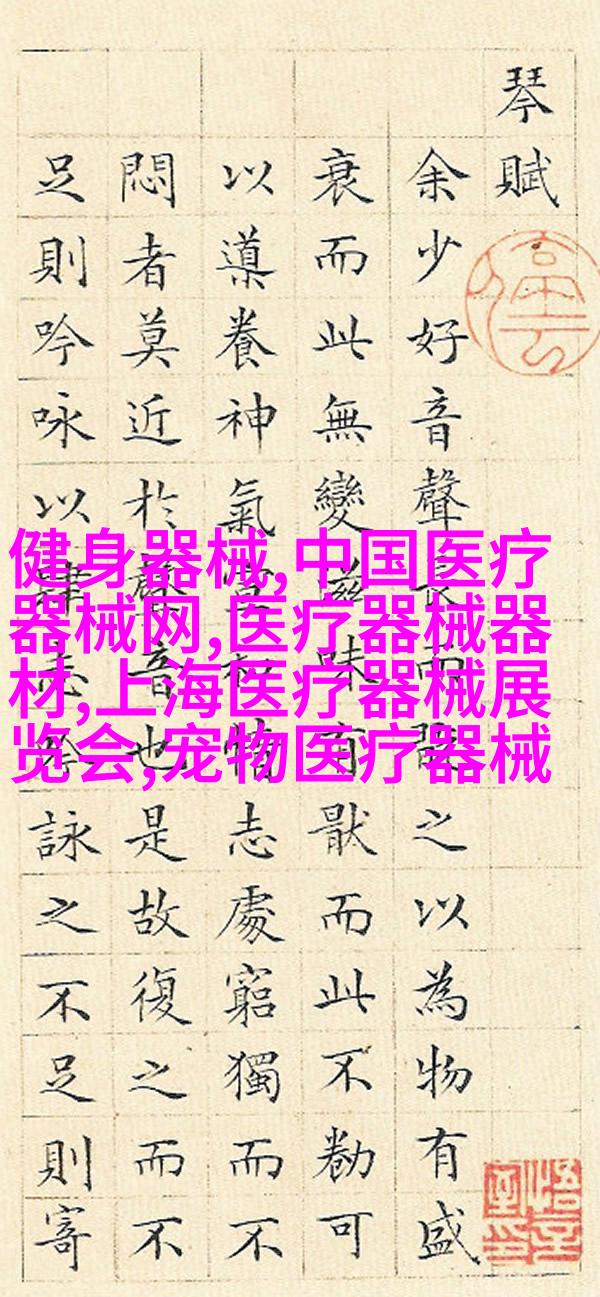 琴賦
余少好音聲長而翫之以為物有盛
衰而此無變滋味有猒而此不勌可
以導養神氣宣和情志處窮獨而不
悶者莫近於聲音也是故復之而不
足則吟咏以肆志吟詠之不足則寄
健身器械,中国医疗
器械网,医疗器械器
材,上海医疗器械展
览会,宠物医疗器械